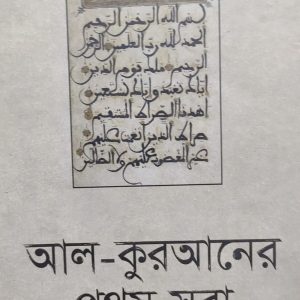 بسم الله الرحمن الرحيم
الحمد لله رب العلمين الرحمن
الرحيم ملك يوم الدين
إياك نعبد وإياك نستعين
اهدنا الصراط المستقيم
صراط الذين أنعمت عليهم
غير المغضوب عليهم ولا الضالين
আল-কুরআনের
প্রথম সূরা